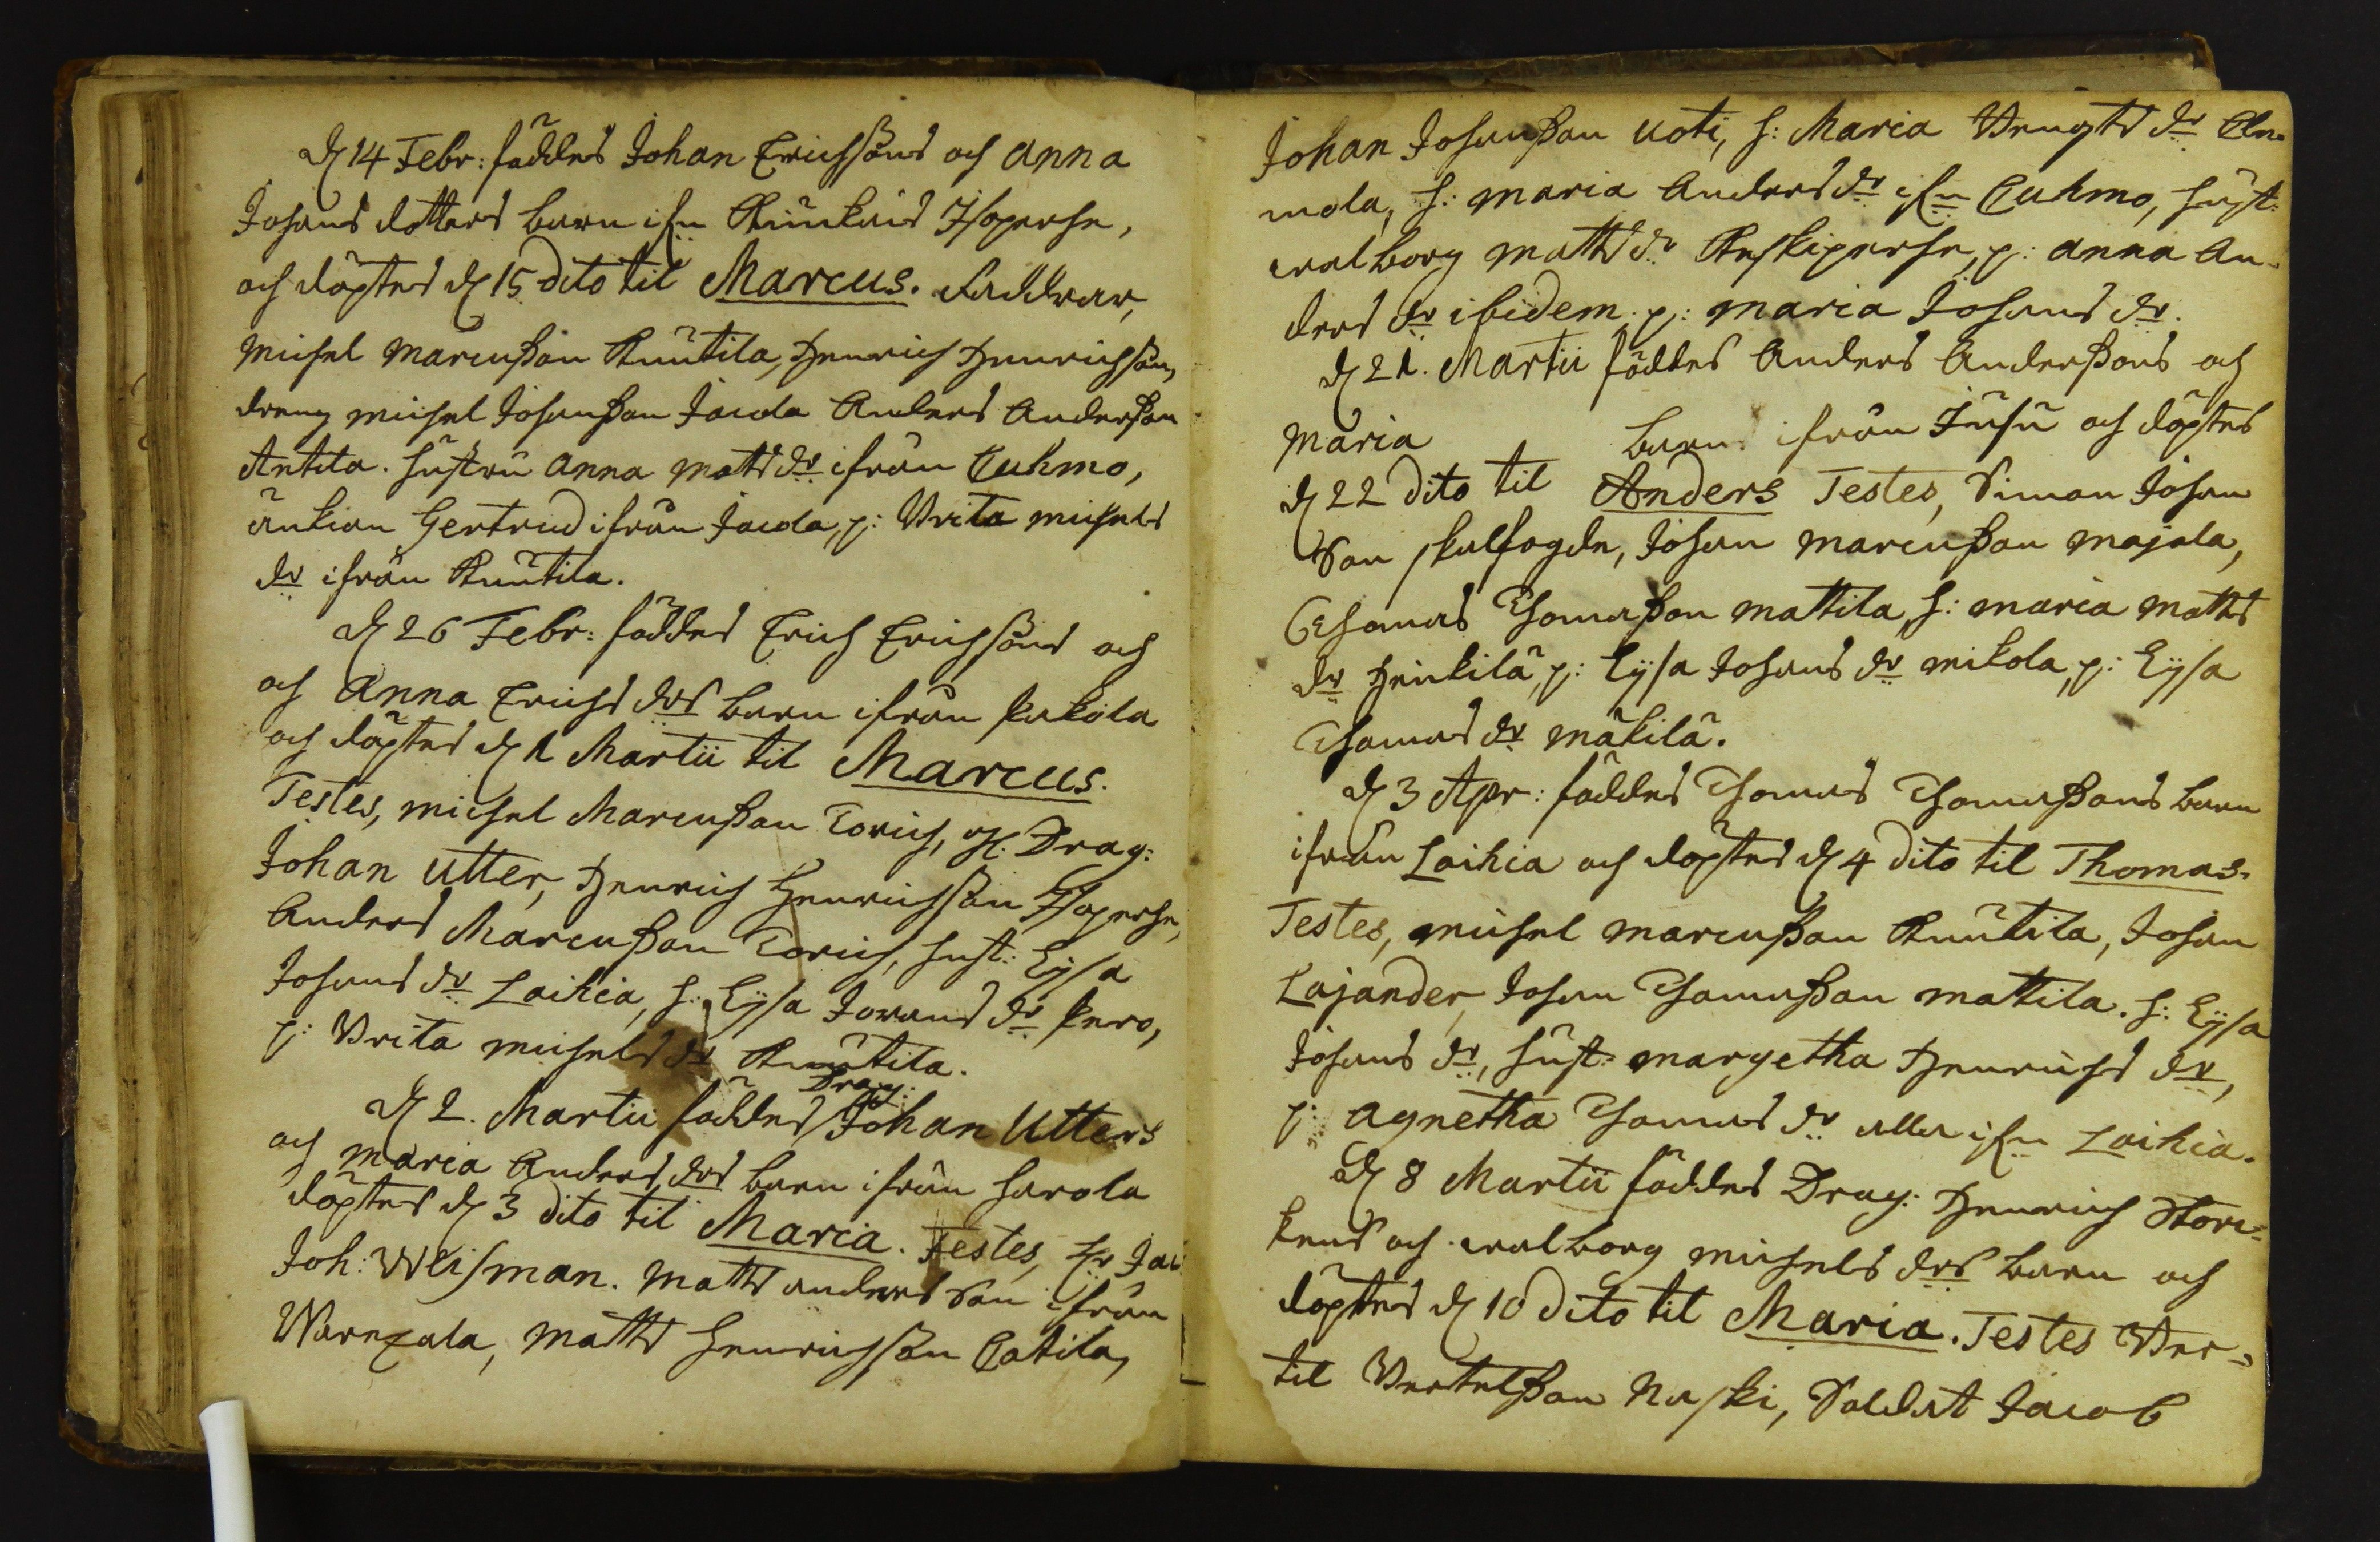 d 14 Febr: föddes Johan Erichssons och Anna
Johans dotters barn ifn Isoperhe,
och döptes d 15 dito til Marcus. Faddrar,
Michel Marcusson Knutila, Henrich Henrichsson,
dreng Michel Johansson Jacola Anders Andersson
Antila. hustru Anna Matts dr ifrån Cuhmo,
änkian Gertrud ifrån Jacola, p: Brita Michels
dr ifrån Knutila.
d 26 Febr: föddes Erich Erichssons och
och Anna Erichs drs barn ifrån Pukola
och döptes d 1 Martii til Marcus.
Testes, Michel Marcusson Torick, Drag:
Johan Utter, Henrich Henrichsson Isoperhe,
Anders Marcusson Torick, hust: Lijsa
Johans dr Laihia, h: Lijsa Jorans dr Pero,
p: Brita Michels dr Knutila.
d 2. Martii föddes Drag: Johan Utters
och Maria Anders drs barn ifrån Harola
döptes d 3 dito til Maria. Testes, Hr Jac
Joh: Weisman. Matts Anders Son ifrån
Warnala, Matts Henrichsson Catila,
Johan Johansson Uoti, h: Maria Bengts dr An-
mola, h: Maria Anders dr ifn Cuhmo, hust:
Walborg Matts dr Keskiperhe, p: Anna An-
ders dr ibidem. p: Maria Johans dr.
d 21. Martii föddes Anders Anderssons och
Maria barn ifrån Jusu och döptes
d 22 dito til Anders Testes, Simon Johan
Son skalfogde, Johan Marcusson Majala,
Thomas Thomasson Mattila, h: Maria Matts
dr Heikilä, p: Lijsa Johans dr Mikola, p: Lijsa
Thomas dr Mäkilä.
d 3 Apr: föddes Thomas Thomassons barn
ifrån Laihia och döptes d 4 dito til Thomas.
Testes, Michel Marcusson Knutila, Johan
Lajander, Johan Thomasson Mattila. h: Lijsa
Johans dr, hust: Margetha Henrichs dr,
p: Agnetha Thomas dr alla ifn Laihia.
d 8 Martii föddes Drag: Henrich Stor-
kens och Walborg Michels drs barn och
döptes d 10 dito til Maria. Testes Ber-
til Bertelsson Naski, Soldat Jacob